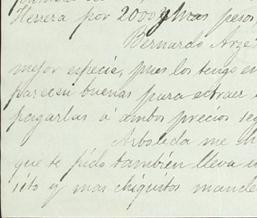 Herrera por 2000 y mas pesos
Bernardo Arze
mejor especie, pues los tengo en
parecen buenas para extraer
pagarlas á ambos precios seg
Arboleda me h
que te pido tambien lleva u
sito y mas chiquitos mande